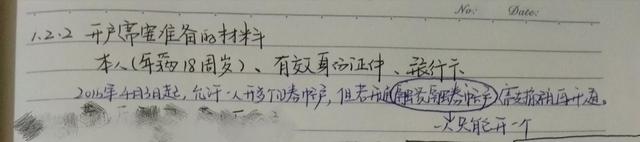 No:  Date:
1.2.2 开户需要准备的材料
本人(年满18周岁)、有效身份证件、银行卡
2015年4月13日起,允许一人开多个证券帐户,但若开通融资融券帐户需要
一人只能开一个